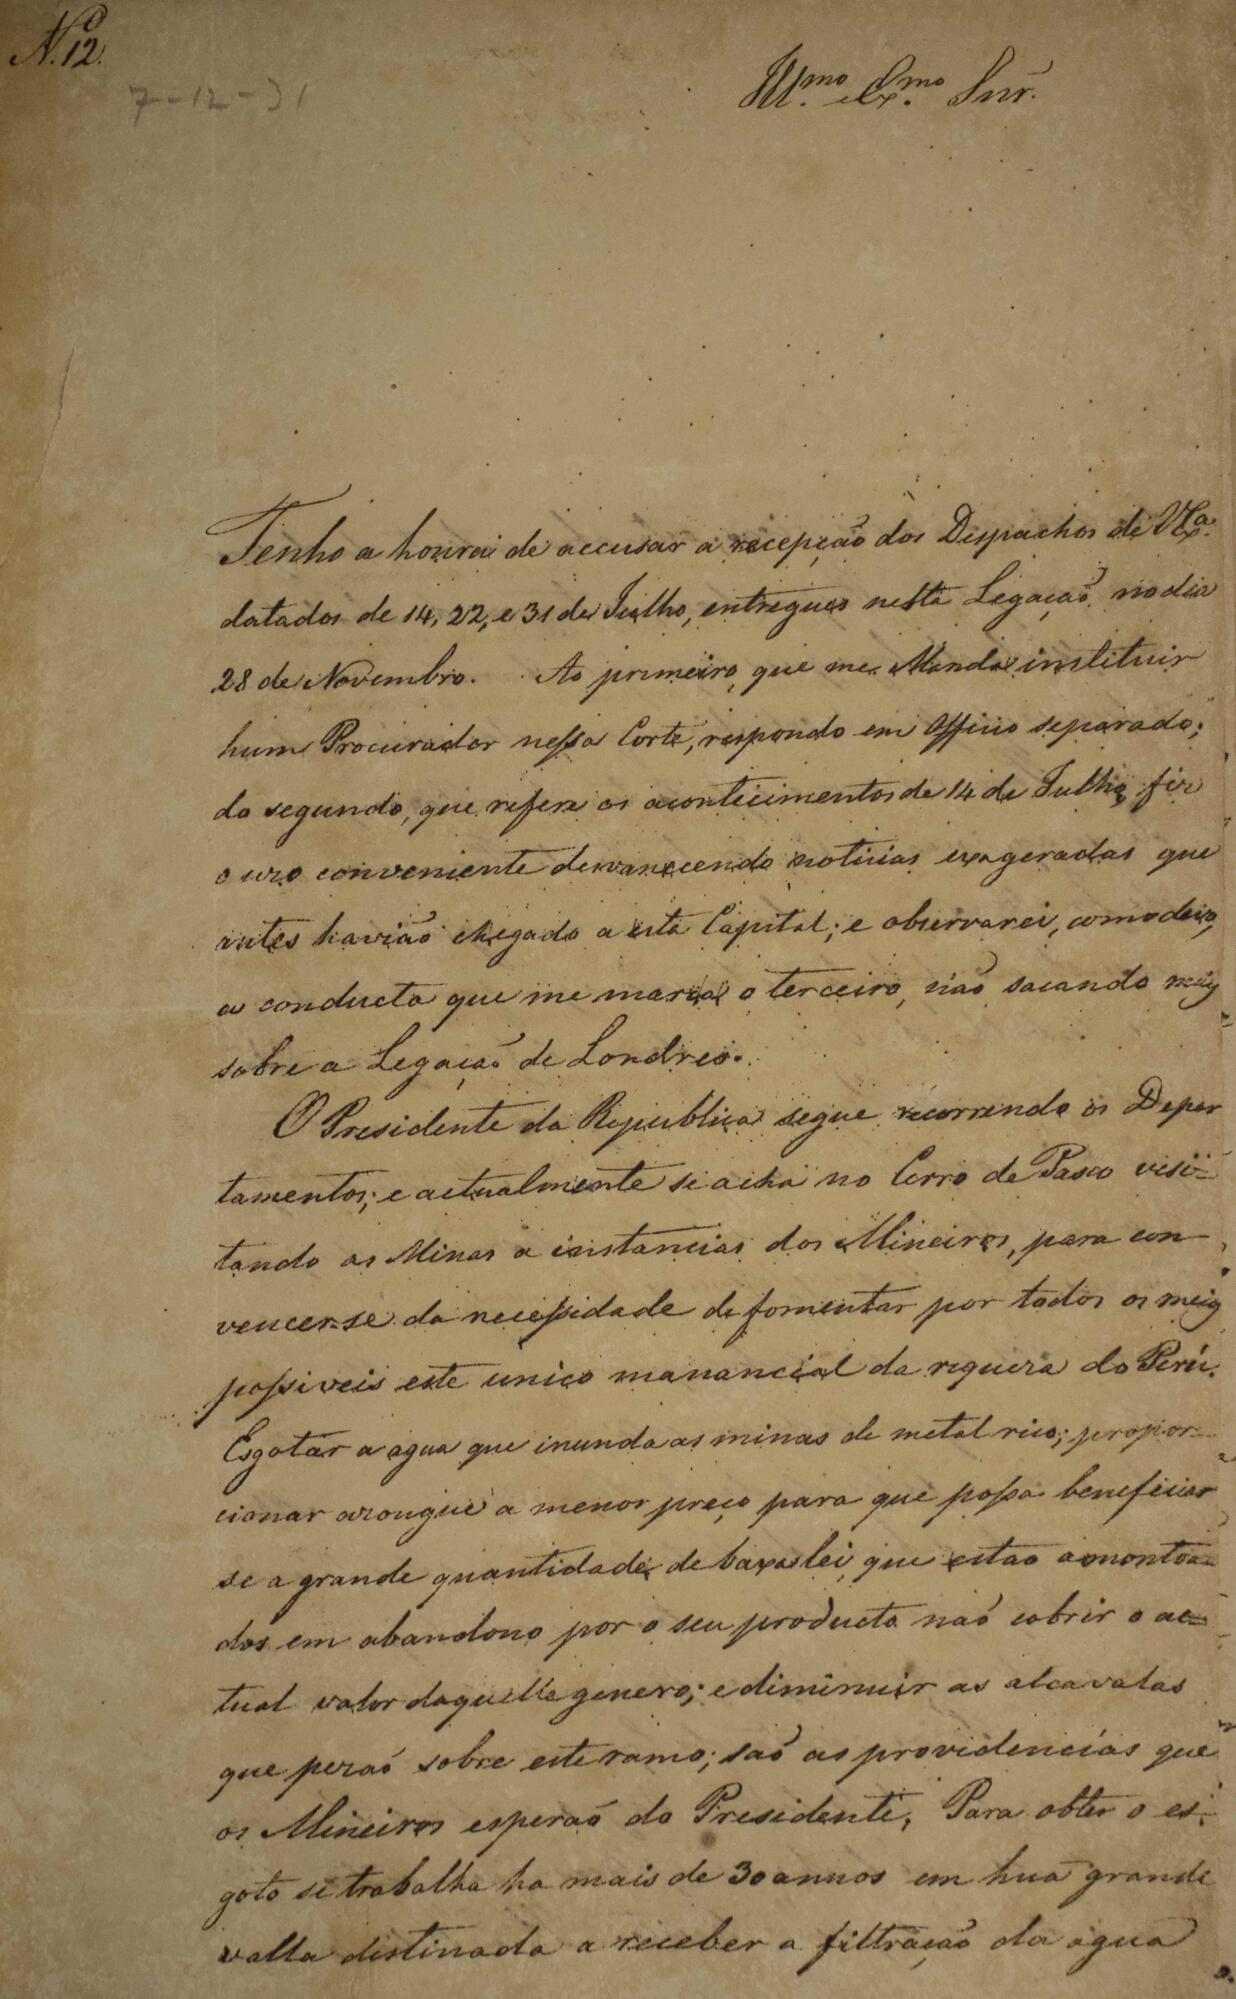 N.º 12.
7-12-31
Ill.mo e Ex.mo Snr.
Tenho a honra de accusar a recepção dos Despachos de V.Ex.a
datados de 14, 22, e 31 de Julho, entregues nesta Legação no dia
28 de Novembro. Ao primeiro, que me Manda instituir
hum Procurador nessa Corte, respondo em Officio separado;
do segundo, que refere os acontecimentos de 14 de Julho, fiz
o uzo conveniente desvanecendo noticias exageradas que
antes havião chegado a esta Capital; e observarei, como devo,
a conducta que me marca o terceiro, não sacando mais
sobre a Legação de Londres.
O Presidente da Republica segue recorrendo os Depar
tamentos; e actualmente se acha no Cerro de Pasco visi-
tando as Minas a instancias dos Mineiros, para con-
vencer-se da necessidade de fomentar por todos os meios
possiveis este unico manancial da riqueza do Perú.
Esgotar a agua que inunda as minas de metal rico; propor-
cionar azougue a menor preço para que possa beneficiar
se a grande quantidade de baxa lei, que estão amontoa-
dos em abandono por o seu producto não cobrir o ac-
tual valor daquelle genero; e diminuir as alcavalas
que pezão sobre este ramo; são as providencias que
os Mineiros esperão do Presidente. Para obter o es-
goto se trabalha ha mais de 30 annos em huã grande
valla distinada a receber a filtração da agua